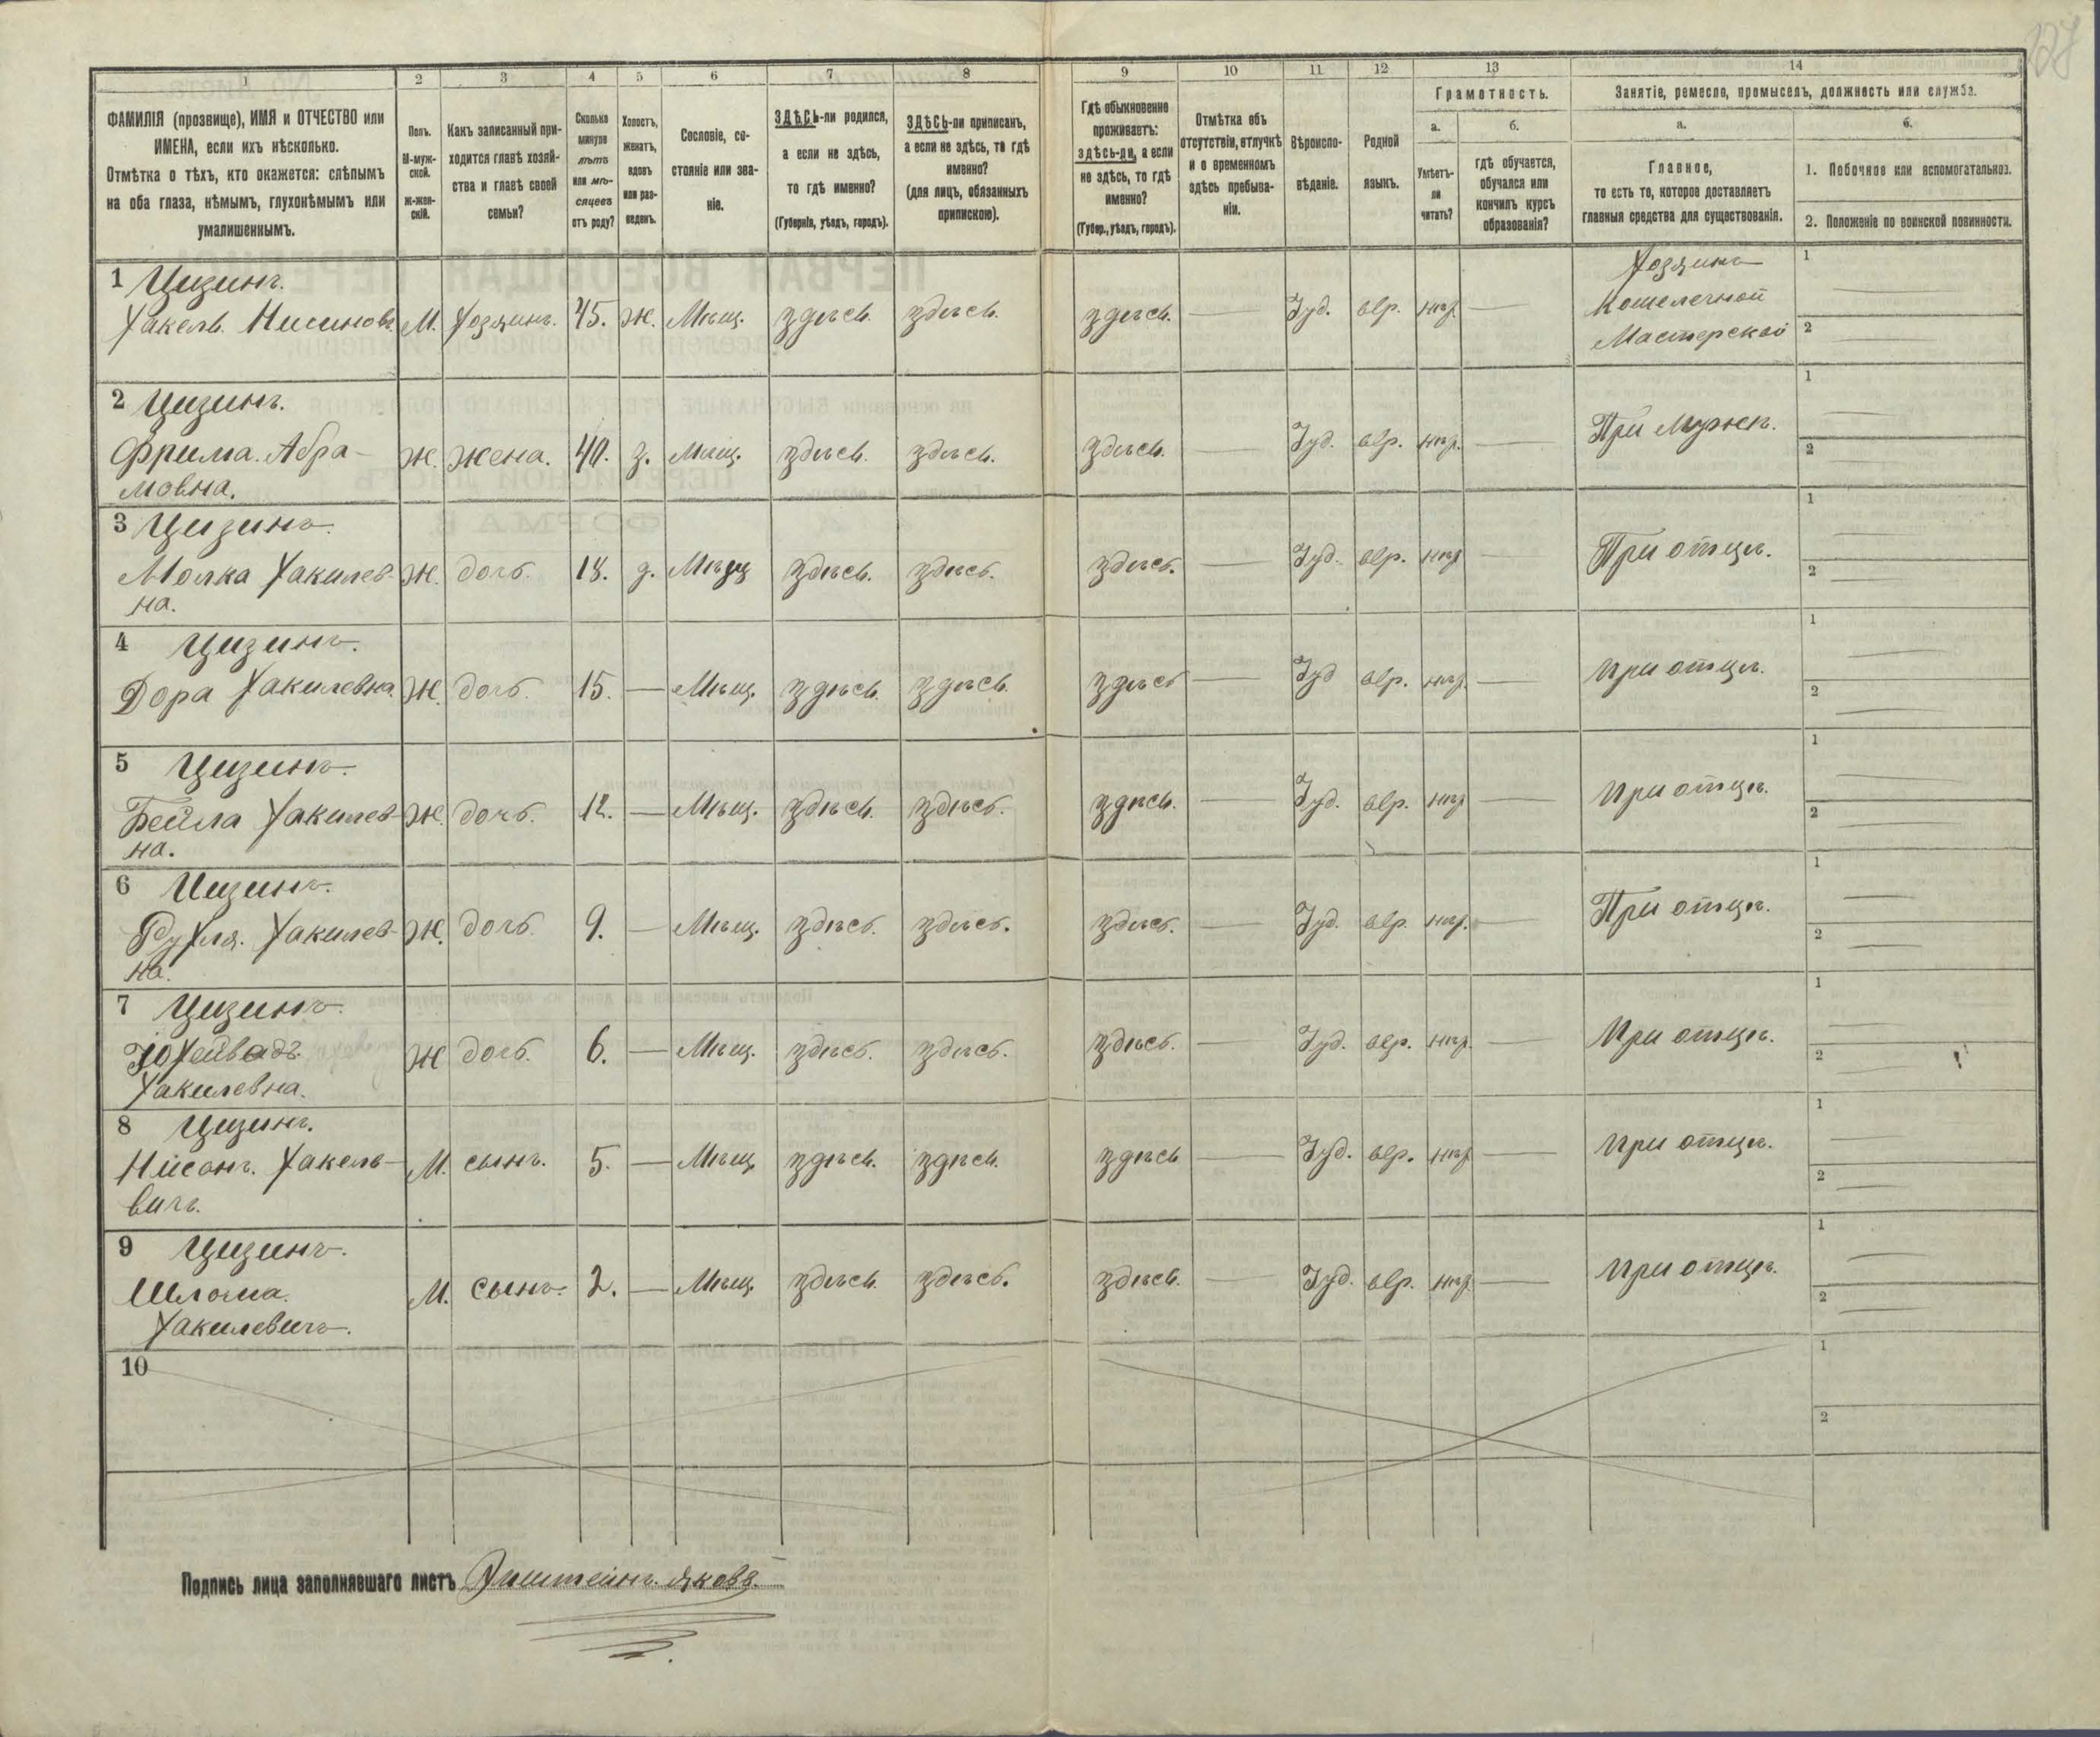 127
1 2 3 4 5 6 7 8 9 10 11 12 13 14
ФАМИЛІЯ (прозвище), ИМЯ и ОТЧЕСТВО или
ИМЕНА, если ихъ нѣсколько.
Отмѣтка о тѣхъ, кто окажется: слѣпымъ
на оба глаза, нѣмымъ, глухонѣмымъ или
умалишеннымъ.
Полъ.
М-муж-
ской.
Ж-жен-
скій.
Какъ записанный при-
ходится главѣ хозяй-
ства и главѣ своей
семьи?
Сколько
минуло
лѣтъ
или мѣ-
сяцевъ
отъ роду?
Холостъ,
женатъ,
вдовъ
или раз-
веденъ.
Сословіе, со-
стояніе или зва-
ніе.
ЗДѢСЬ-ли родился,
а если не здѣсь,
то гдѣ именно?
(Губернія, уѣздъ, городъ).
ЗДѢСЬ-ли приписанъ,
а если не здѣсь, то гдѣ
именно?
(для лицъ, обязанныхъ
припискою).
Гдѣ обыкновенно
проживаетъ:
здѣсь-ли, а если
не здѣсь, то гдѣ
именно?
(Губер., уѣздъ, городъ).
Отмѣтка объ
отсутствіи, отлучкѣ
и о временномъ
здѣсь пребыва-
ніи.
Вѣроиспо-
вѣданіе.
Родной
языкъ.
Грамотность.
а.
Умѣетъ-
ли
читать?
б.
гдѣ обучается,
обучался или
кончилъ курсъ
образованія?
Занятіе, ремесло, промыселъ, должность или служба.
а.
Главное,
то есть то, которое доставляетъ
главныя средства для существованія.
б.
1. Побочное или вспомогательное.
2. Положеніе по воинской повинности.
1 Цизинъ.
Хакель. Нисиновъ. М. Хозяинъ. 45. ж. Мѣщ. здѣсь. здѣсь. здѣсь. — Іуд. евр. нѣт —
Хозяинъ
Кошелечной
Мастерской
1
2
2 Цизинъ.
Фрима. Абра- Ж. жена. 40. з. Мѣщ. здѣсь. здѣсь. здѣсь. — Іуд. евр. нѣт. — При Мужѣ.
мовна.
1
2
3 Цизинъ.
Малка Хакилев- Ж. дочь. 18. д. Мѣщ здѣсь. здѣсь. здѣсь. — Іуд. евр. нѣт — При отцѣ.
на.
1
2
4 Цизинъ.
Дора Хакилевна Ж. дочь. 15. — Мѣщ. здѣсь. здѣсь. здѣсь — Іуд евр. нѣт. — при отцѣ.
1
2
5 Цизинъ.
Бейла Хакилев- Ж. дочь. 12. — Мѣщ. здѣсь. здѣсь. здѣсь. — Іуд. евр. нѣт — при отцѣ.
на.
1
2
6 Цизинъ.
Рухля. Хакилев- Ж. дочь. 9. — Мѣщ. здѣсь. здѣсь. здѣсь. — Іуд. евр. нѣт. — При отцѣ.
на.
1
2
7 Цизинъ.
Ж дочь. 6. — Мѣщ. здѣсь. здѣсь. здѣсь. — Іуд. евр. нѣт. — При отцѣ.
Хакилевна.
1
2
8 Цизинъ.
Нисонъ. Хакель- М. сынъ. 5. — Мѣщ. здѣсь. здѣсь. здѣсь — Іуд. евр. нѣт — при отцѣ.
вичъ.
1
2
9 Цизинъ.
Шлома. М. сынъ. 2. — Мѣщ. здѣсь. здѣсь. здѣсь. — Іуд. евр. нѣт. — при отцѣ.
Хакилевичъ.
1
2
10
1
2
Подпись лица заполнявшаго листъ